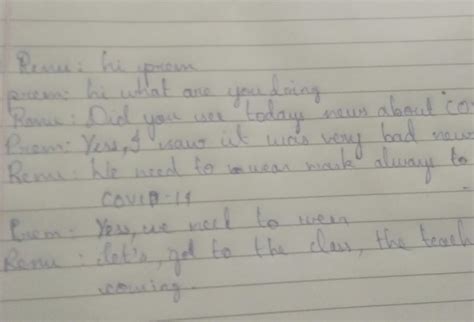 Renu: hi prem
prem: hi what are you doing
Renu: Did you see today news about co
Prem: Yess, I saw it was very bad new
Renu: We need to wear mask always to
COVID-19
Prem: Yess, we need to wear
Renu: let's, got to the class, the teach
coming.